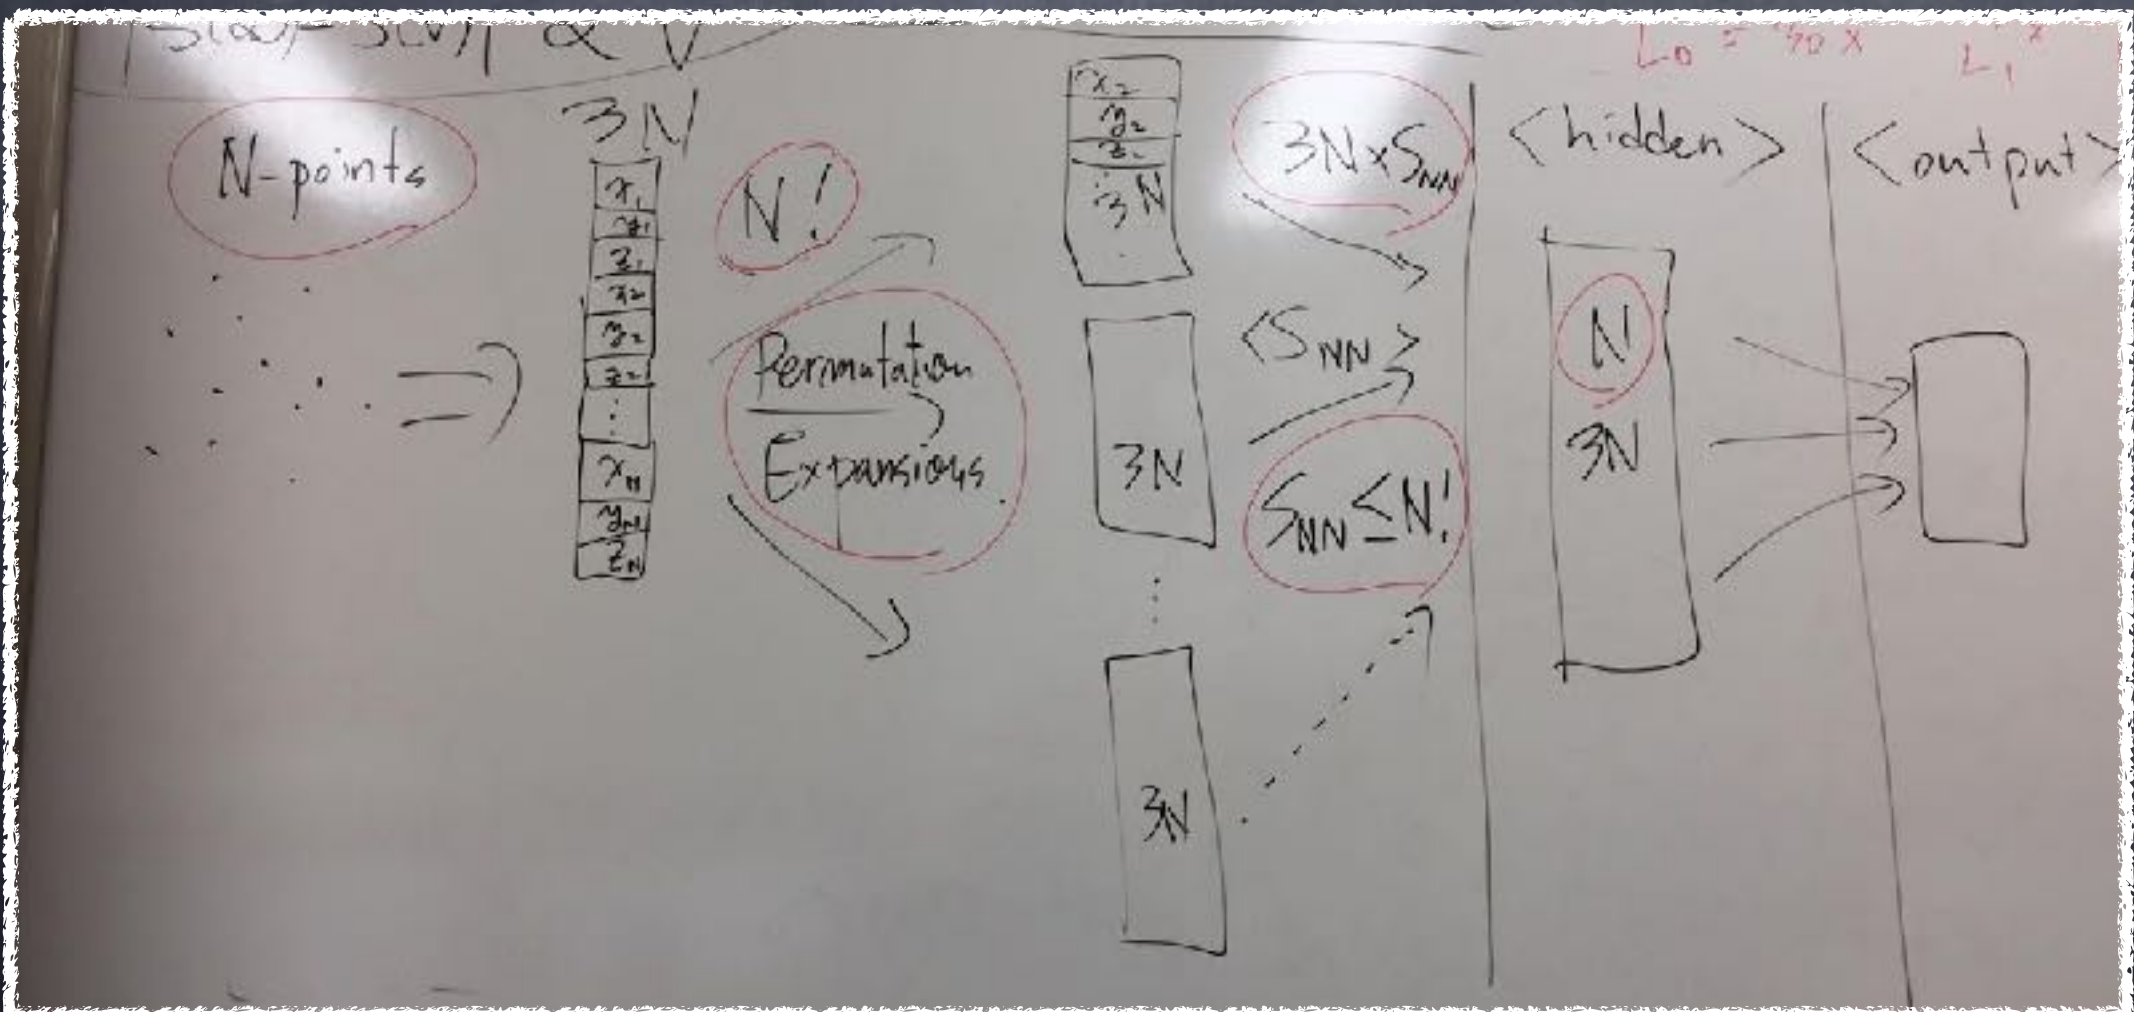 N-points
3N
x₁
y₁
z₁
x₂
y₂
z₂
⋮
x_N
y_N
z_N
N!
Permutation
Expansions
x₂
y₂
z₂
3N
3N
⋮
3N
3N×S_NN
<S_NN>
S_NN≤N!
<hidden>
N!
3N
<output>